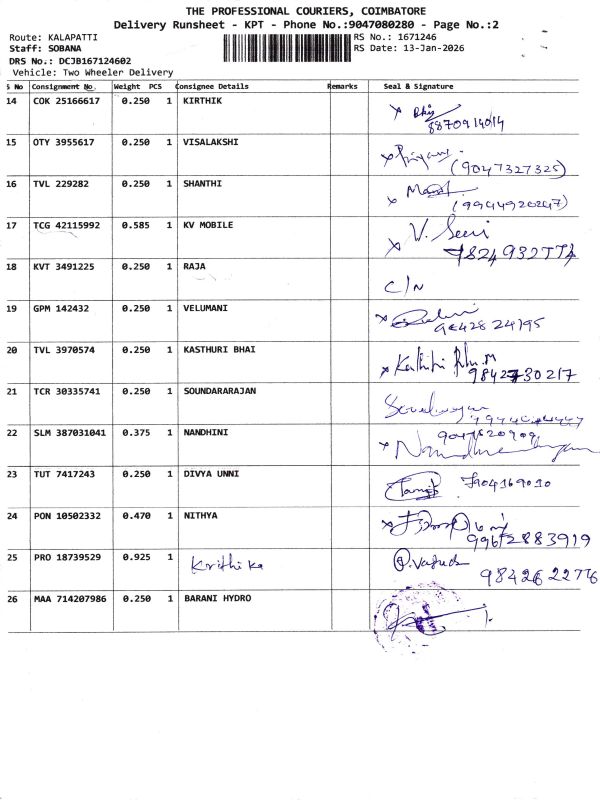 THE PROFESSIONAL COURIERS, COIMBATORE
Delivery Runsheet - KPT - Phone No.:9047080280 - Page No.:2
Route: KALAPATTI RS No.: 1671246
Staff: SOBANA RS Date: 13-Jan-2026
DRS No.: DCJB167124602
Vehicle: Two Wheeler Delivery
S No Consignment No. Weight PCS Consignee Details Remarks Seal & Signature
14 COK 25166617 0.250 1 KIRTHIK
8870914014
15 OTY 3955617 0.250 1 VISALAKSHI
(9047327325)
16 TVL 229282 0.250 1 SHANTHI
(9944920247)
17 TCG 42115992 0.585 1 KV MOBILE V. Seeni
18 KVT 3491225 0.250 1 RAJA C/N
19 GPM 142432 0.250 1 VELUMANI
20 TVL 3970574 0.250 1 KASTHURI BHAI
9842730217
21 TCR 30335741 0.250 1 SOUNDARARAJAN
22 SLM 387031041 0.375 1 NANDHINI
23 TUT 7417243 0.250 1 DIVYA UNNI 7904169010
24 PON 10502332 0.470 1 NITHYA
25 PRO 18739529 0.925 1 Krithika
9842622776
26 MAA 714207986 0.250 1 BARANI HYDRO